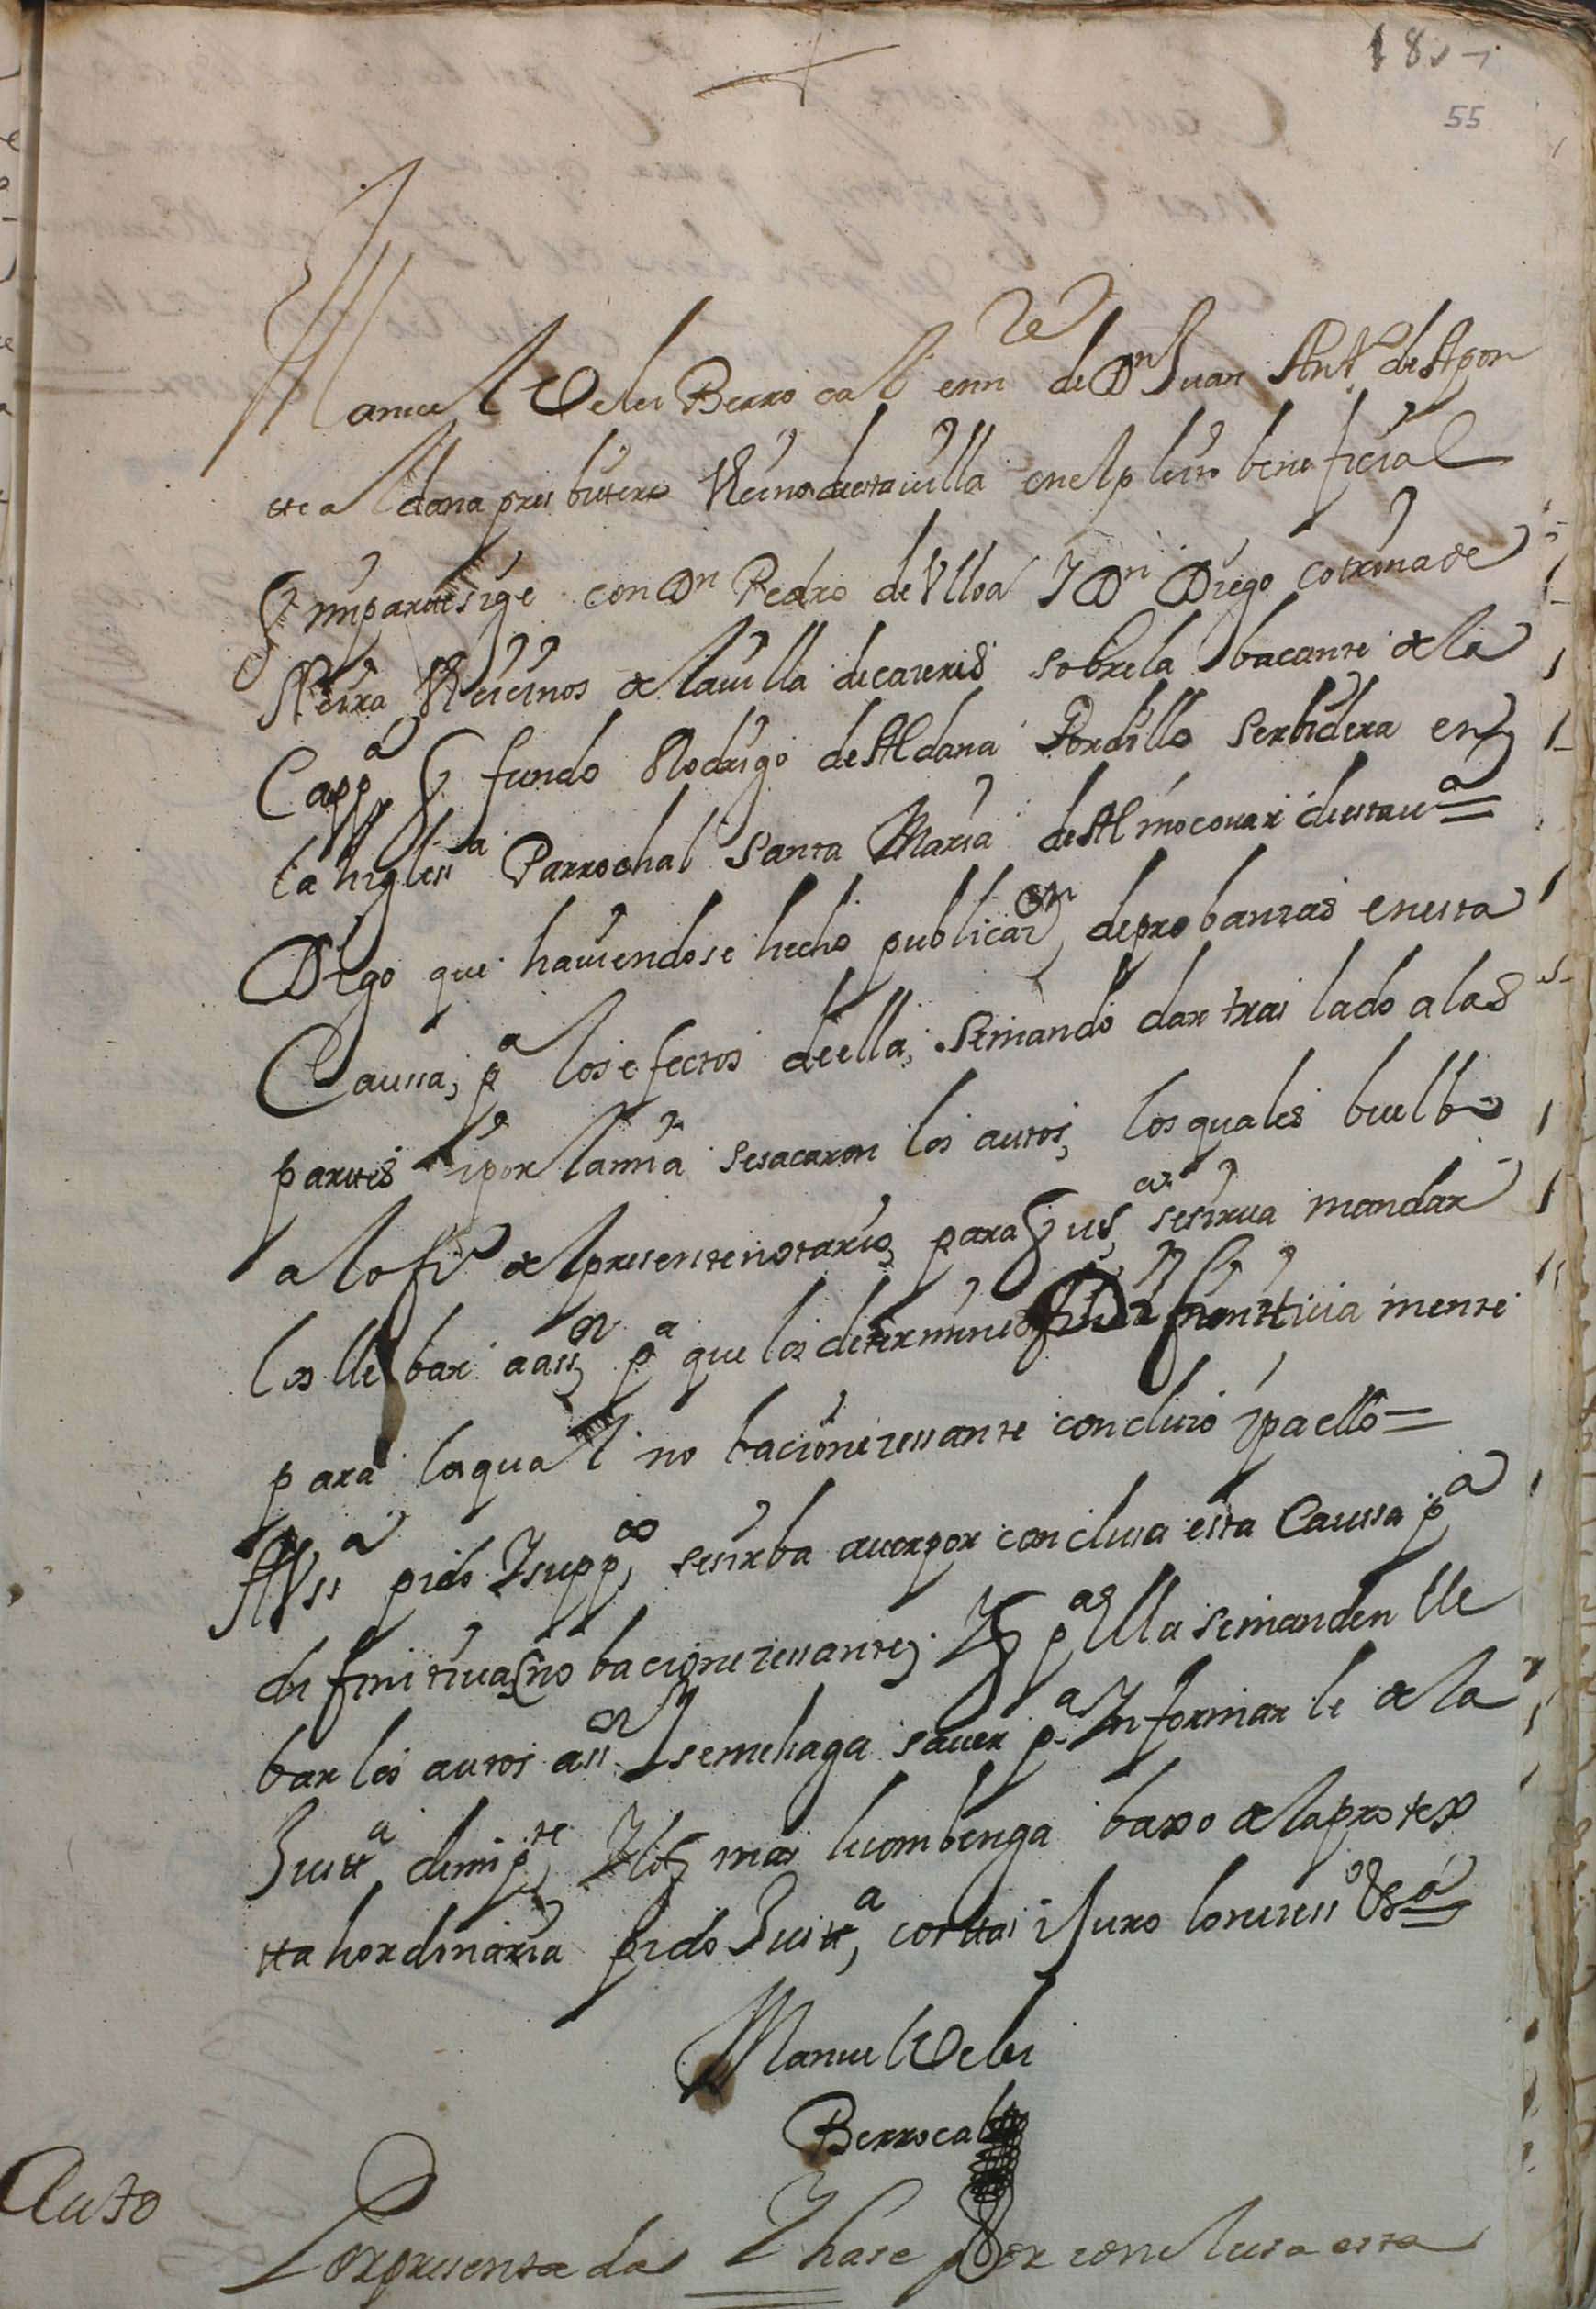 55
Manuel Veles Berrocal enn re de Dn Juan Antto de Apon
tte aldana presbitero Vecino destauilla enelpleito beneficial
q miparttesige con Dn Pedro de Vlloa Y Dn Diego cotrina de
Neira Vecinos de lauilla decaceres sobrela bacante de la
Capp a q fundo Rodrigo de Aldana Pordillo Serbidera en
la higless a Parrochal Santa Maria de Almocouar destau a
Digo que hauiendose hecho publicaz on deprobanzas enesta
Caussa, p a losefectos deella, Semando dar traslado alas
parttes ipor lamia sesacaron los autos, losquales buelbo
alofi o delpresentenotario, para q us sesirua mandar
los llebar aass on p a que los determine difinittiuamente
para loqual no baciónezessante concluio ipaello
AVss a pido Ysupp co sesirba auerpor conclusa esta Caussa p a
difinitiua (no bacionezessante) Y q p a ella semanden lle
bar los autos ass on Y semehaga sauer p a Informarle de la
Justt a demip te Ylo q mas lecombenga baxo de laprotex
tta hordinaria pido Justt a, costtas i Juro lonezess o &a
Manuel Veles
Berrocal
Auto
Porpresentada Y hase por conclusa esta